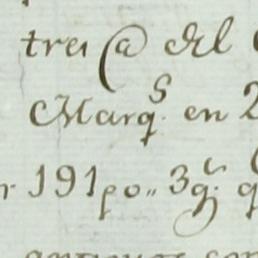 tres @ del
Marq.s en 2
191 po,, 3 q.s q